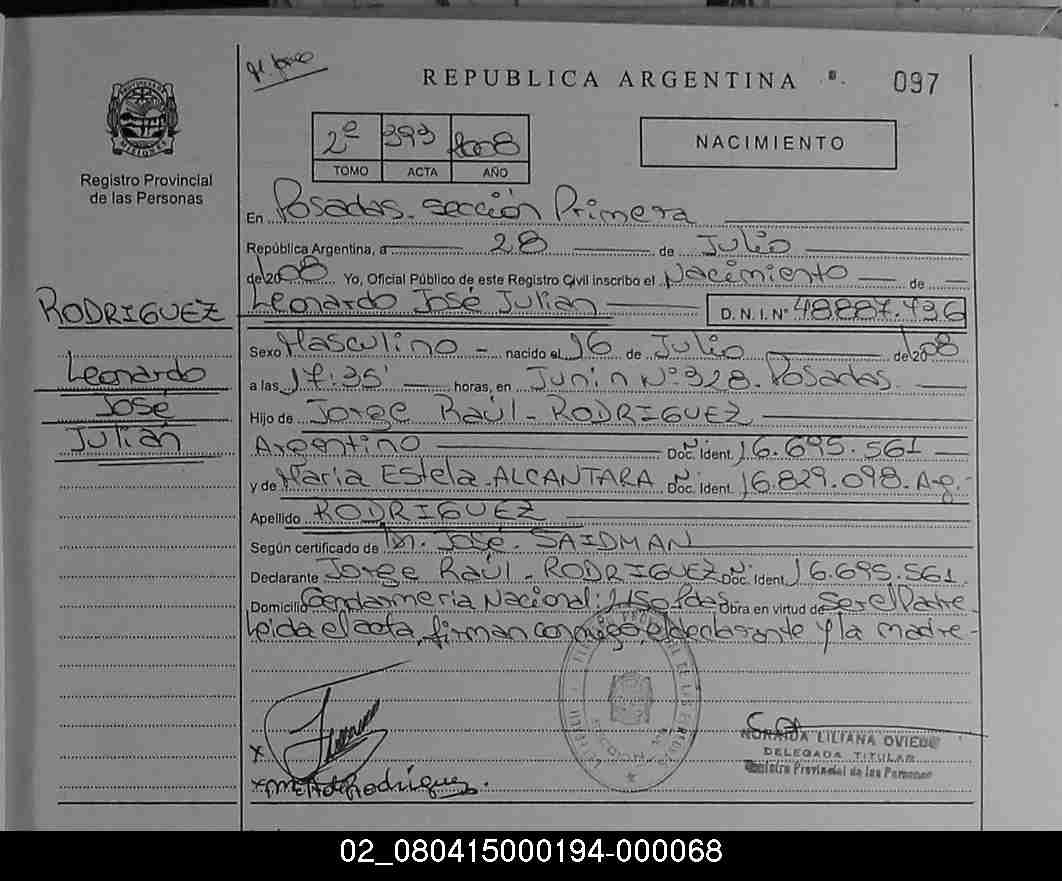 REPUBLICA ARGENTINA
097
PROVINCIA DE
MISIONES
Registro Provincial
de las Personas
2º 393 2008
TOMO ACTA AÑO
NACIMIENTO
En Posadas. sección Primera
República Argentina, a 28 de Julio
de 2008 Yo, Oficial Público de este Registro Civil inscribo el Nacimiento de
Leonardo José Julian D. N. I. Nº 48887.736
RODRIGUEZ
Leonardo
José
Julián
Sexo Masculino - nacido el 16 de Julio de 2008
a las 17:35' horas, en Junin Nº 328. Posadas.
Hijo de Jorge Raúl - RODRIGUEZ
Argentino Doc. Ident. 16.695.561
y de María Estela - ALCANTARA Doc. Ident. 16.829.098. Arg.-
Apellido RODRIGUEZ
Según certificado de Dr. José. SAIDMAN
Declarante Jorge Raúl - RODRIGUEZ Doc. Ident. 16.695.561.
Domicilio Gendarmeria Nacional: Obra en virtud de ser el Padre
Leida el acta, firman conmigo, el declarante y la madre-
x
x M E A de Rodríguez.
NORAIDA LILIANA OVIEDO
DELEGADA TITULAR
Registro Provincial de las Personas
02_080415000194-000068